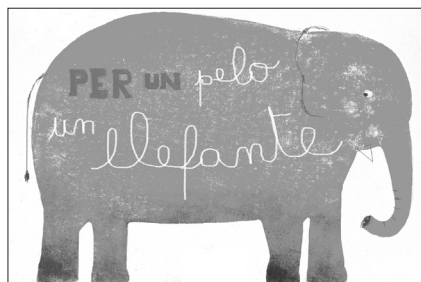 PER UN pelo
un elefante